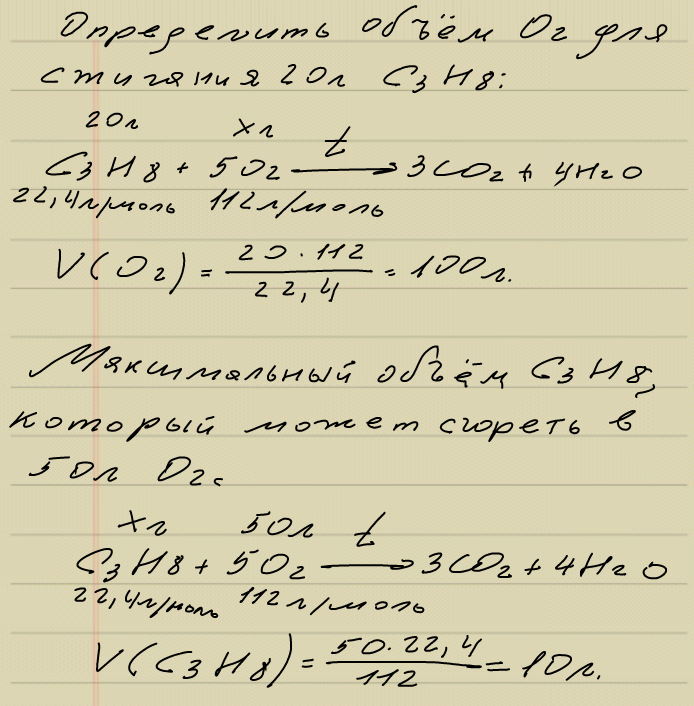 Определить объём O2 для
стигания 20л C3H8:
20л xл
t
C3H8 + 5O2 → 3CO2 + 4H2O
22,4л/моль 112л/моль
V(O2) = 20·112 / 22,4 = 100л.
Максимальный объём C3H8,
который может сгореть в
50л O2.
xл 50л t
C3H8 + 5O2 → 3CO2 + 4H2O
22,4л/моль 112л/моль
V(C3H8) = 50·22,4 / 112 = 10л.